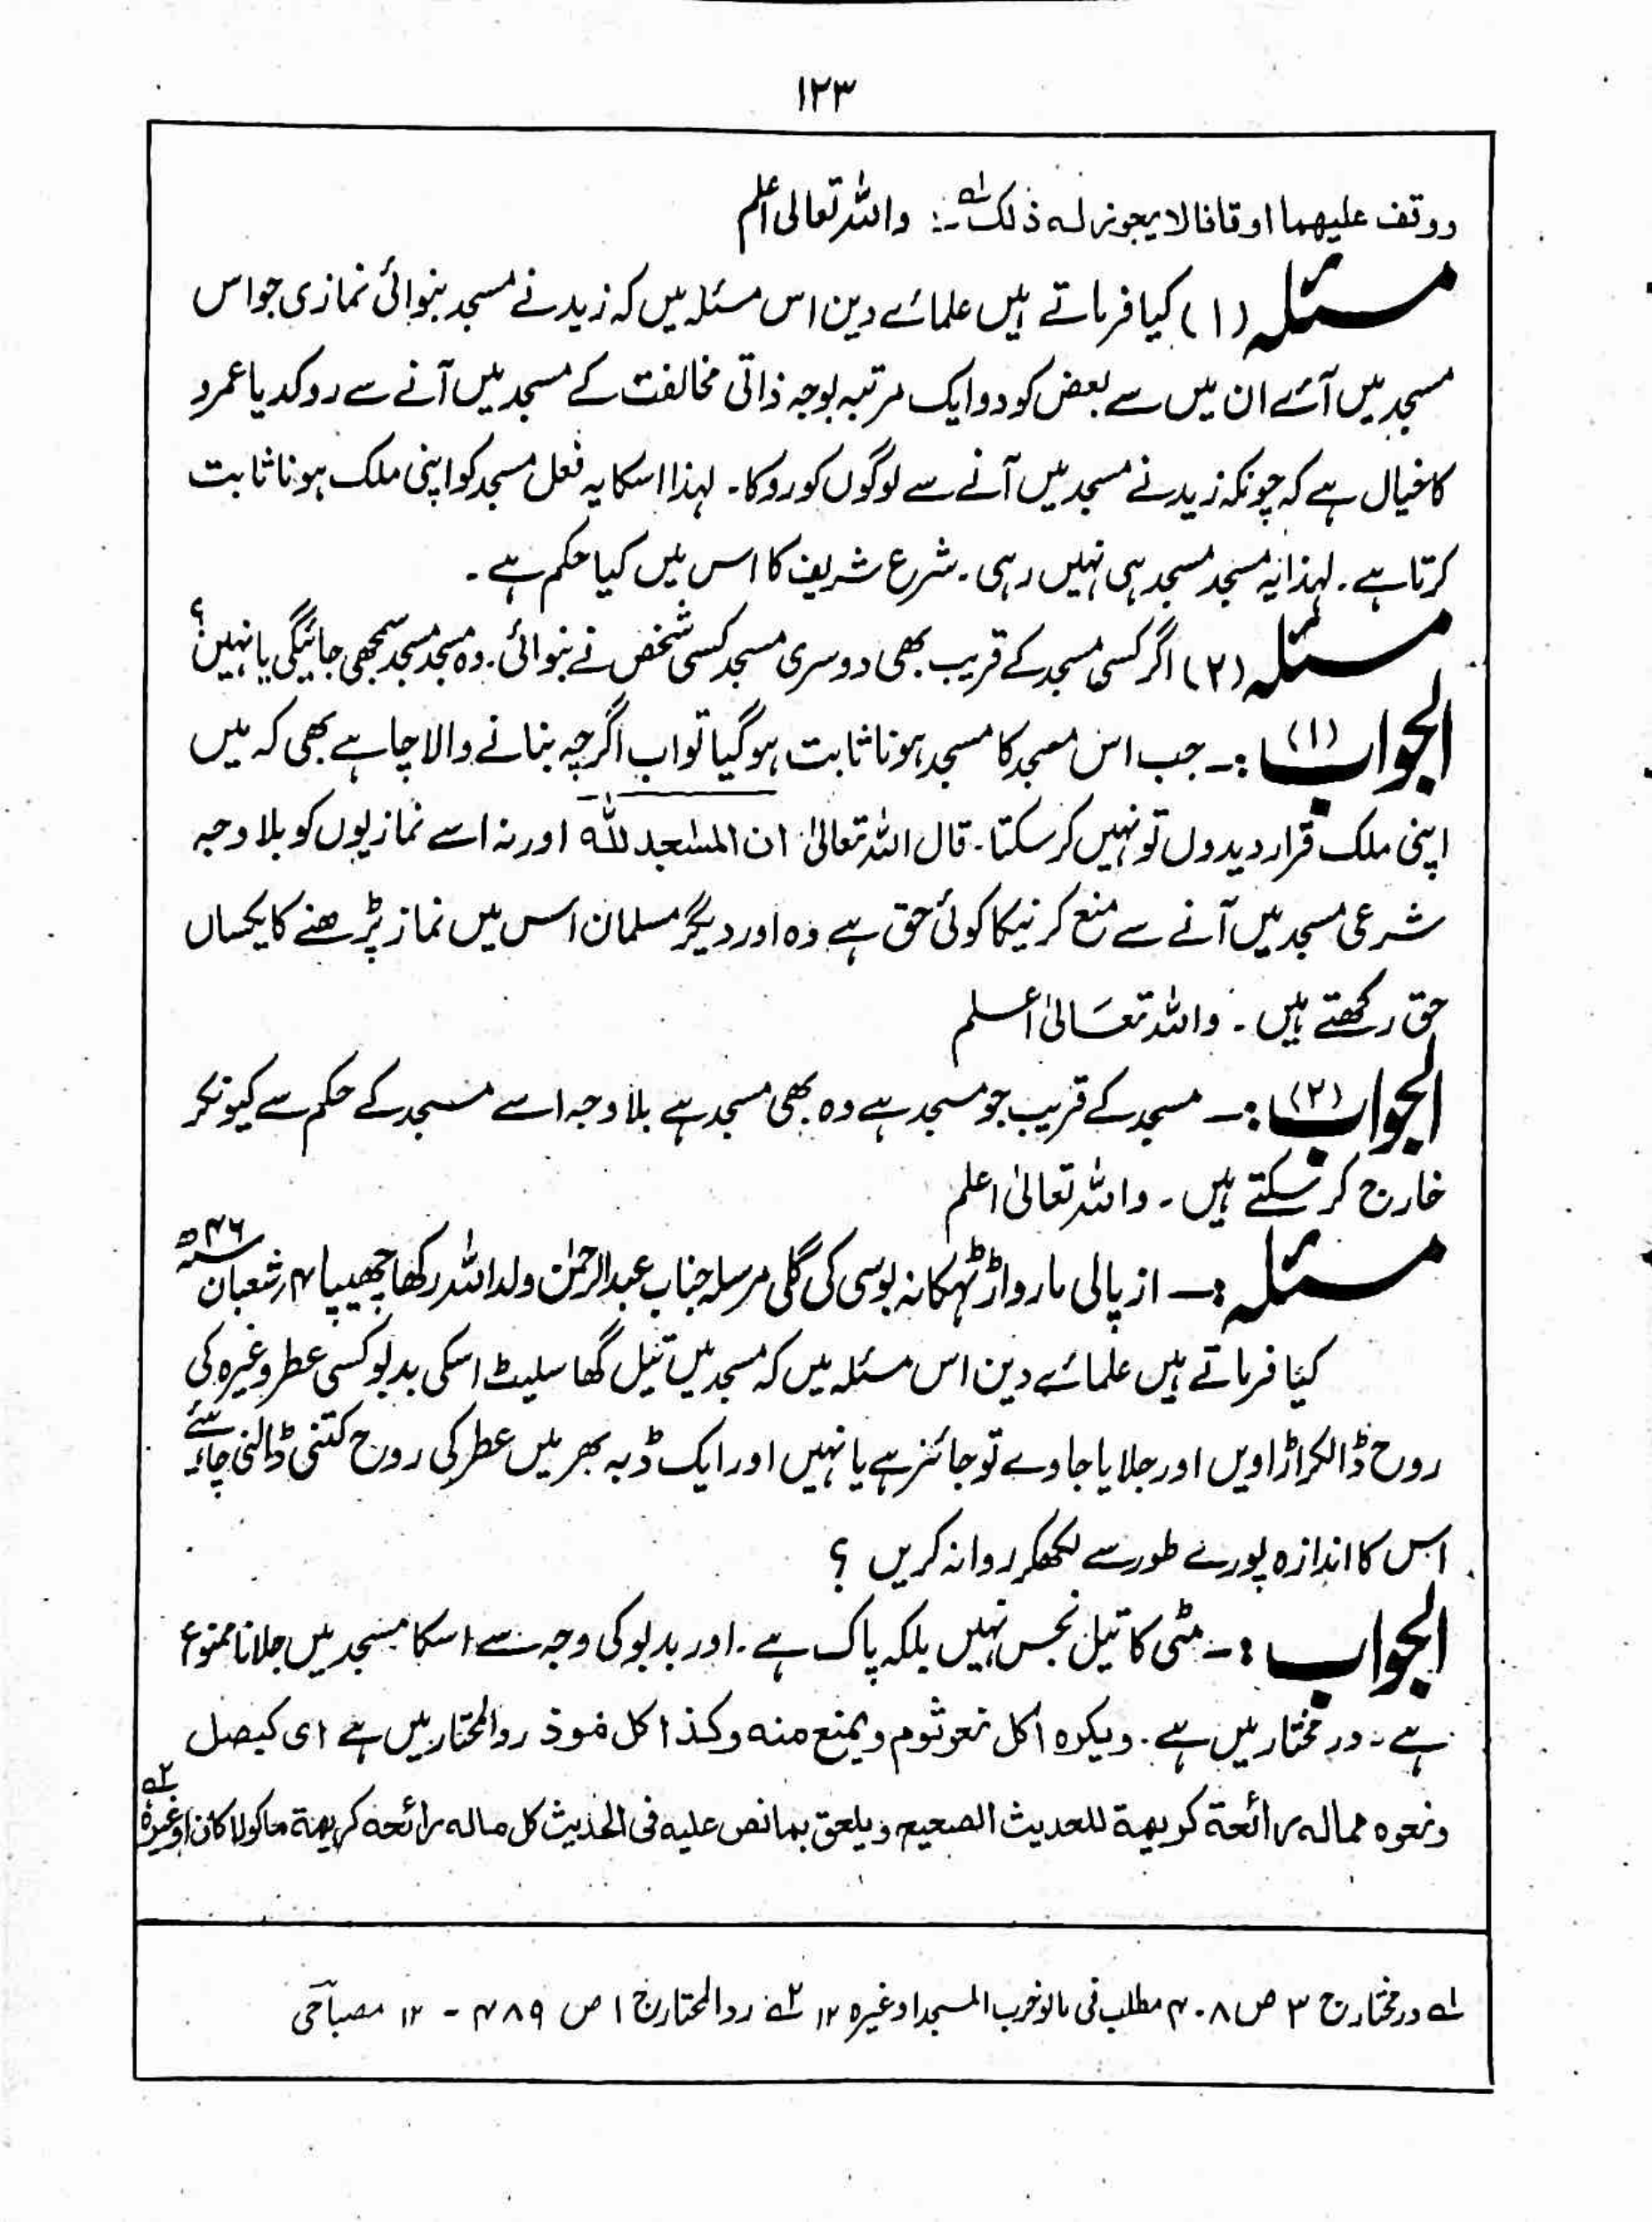 ۱۲۳
ووقف علیھما اوقافا لا یجوز لہ ذلک ۱ـه :۔ واللہ تعالی اعلم
مسئلہ (۱) کیا فرماتے ہیں علمائے دین اس مسئلہ میں کہ زید نے مسجد بنوائی نمازی جو اس
مسجد میں آئے ان میں سے بعض کو دو ایک مرتبہ بوجہ ذاتی مخالفت کے مسجد میں آنے سے روکدیا عمرو
کا خیال ہے کہ چونکہ زید نے مسجد میں آنے سے لوگوں کو روکا۔ لہذا اسکا یہ فعل مسجد کو اپنی ملک ہونا ثابت
کرتا ہے۔ لہذا یہ مسجد مسجد ہی نہیں رہی۔ شرع شریف کا اس میں کیا حکم ہے۔
مسئلہ (۲) اگر کسی مسجد کے قریب بھی دوسری مسجد کسی شخص نے بنوائی۔ وہ مسجد مسجد سمجھی جائیگی یا نہیں؟
الجواب (۱) :۔ جب اس مسجد کا مسجد ہونا ثابت ہوگیا تو اب اگرچہ بنانے والا چاہے بھی کہ میں
اپنی ملک قرار دیدوں تو نہیں کرسکتا۔ قال اللہ تعالیٰ ان المسٰجد للہ اور نہ اسے نمازیوں کو بلا وجہ
شرعی مسجد میں آنے سے منع کرنیکا کوئی حق ہے وہ اور دیگر مسلمان اس میں نماز پڑھنے کا یکساں
حق رکھتے ہیں۔ واللہ تعَالیٰ اعلم
الجواب (۲) :۔ مسجد کے قریب جو مسجد ہے وہ بھی مسجد ہے بلا وجہ اسے مسجد کے حکم سے کیونکر
خارج کرسکتے ہیں۔ واللہ تعالیٰ اعلم
مسئلہ :۔ از پالی مارواڑ ٹہکانہ بوسی کی گلی مرسلہ جناب عبدالرحمٰن ولد اللہ رکھا چھیپا ۴ر شعبان سنہ ۴۶ ھ
کیا فرماتے ہیں علمائے دین اس مسئلہ میں کہ مسجد میں تیل گھاسلیٹ اسکی بدبو کسی عطر وغیرہ کی
روح ڈالکر اڑاویں اور جلایا جاوے تو جائز ہے یا نہیں اور ایک ڈبہ بھر میں عطر کی روح کتنی ڈالنی چاہئے
اس کا اندازہ پورے طور سے لکھکر روانہ کریں ؟
الجواب :۔ مٹی کا تیل نجس نہیں بلکہ پاک ہے۔ اور بدبو کی وجہ سے اسکا مسجد میں جلانا ممنوع
ہے۔ درمختار میں ہے۔ ویکرہ اکل نحو ثوم ویمنع منہ وکذا کل موذ ردالمحتار میں ہے ای کبصل
ونحوہ ممالہ رائحۃ کریھۃ للحدیث الصحیح ویلحق بمانص علیہ فی الحدیث کل مالہ رائحہ کریھۃ ماکولا کان اوغیرہ ۲ـه
۱ـه درمختار ج ۳ ص ۴۰۸ مطلب فی مالو خرب المسجد اوغیرہ ۱۲ ۲ـه ردالمحتار ج ۱ ص ۴۸۹ ۔ ۱۲ مصباحی